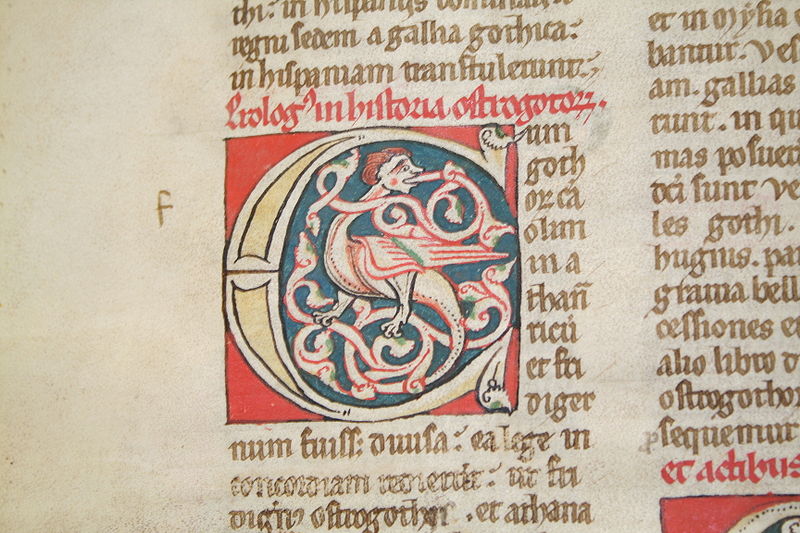 thi: in hispaniis dominant
regni sedem a gallia gothica:
in hispaniam transtulerunt:
Prolog' in historia ostrogotoꝝ.
um
goth
or cā
olim
in a
thanr̄
ricū
et fri
diger
num fuiss; diuisa: ea lege in
concordiam redierūt: ut fri
digerū ostrogothis . et athana
f
et in mysia
bantur. ves
am. gallias
runt. in qu
mas posuer
dci sunt ve
les gothi.
hugnis. pa
grauia bell
cessiones e
alio libro d
ostrogothor
psequemur
et actibus